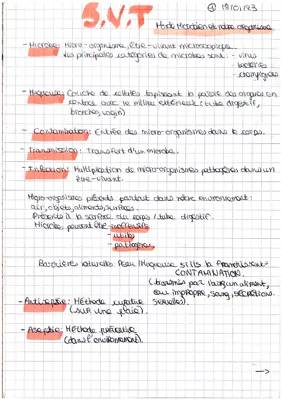 S.V.T
- Microbe: Micro-organisme, être-vivant microscopique.
Les principales catégories de microbes sont: - virus
- bactéries
- Muqueuse: Couche de cellules tapissant la paroi des organes en
contact avec le milieu extérieur (tube digestif,
bronches, vagin)
- Contamination: Entrée des micro-organismes dans le corps.
- Transmission: Transfert d'un microbe.
- Infection: Multiplication de micro-organismes pathogènes dans un
être-vivant.
Micro-organismes présents partout dans notre environnement:
air, objets, aliments, surfaces.
Présents à la surface du corps / tube digestif.
Microbes peuvent être - inoffensifs
- utiles
- pathogènes
Barrières naturelles Peau / Muqueuse si ils la franchissent:
CONTAMINATION.
(transmis par l'air, un aliment,
eau impropre, sang, sécrétions
sexuelles).
- Antiseptie: Méthode curative
(sur une plaie).
- Asepsie: Méthode préventive
(dans l'environnement).